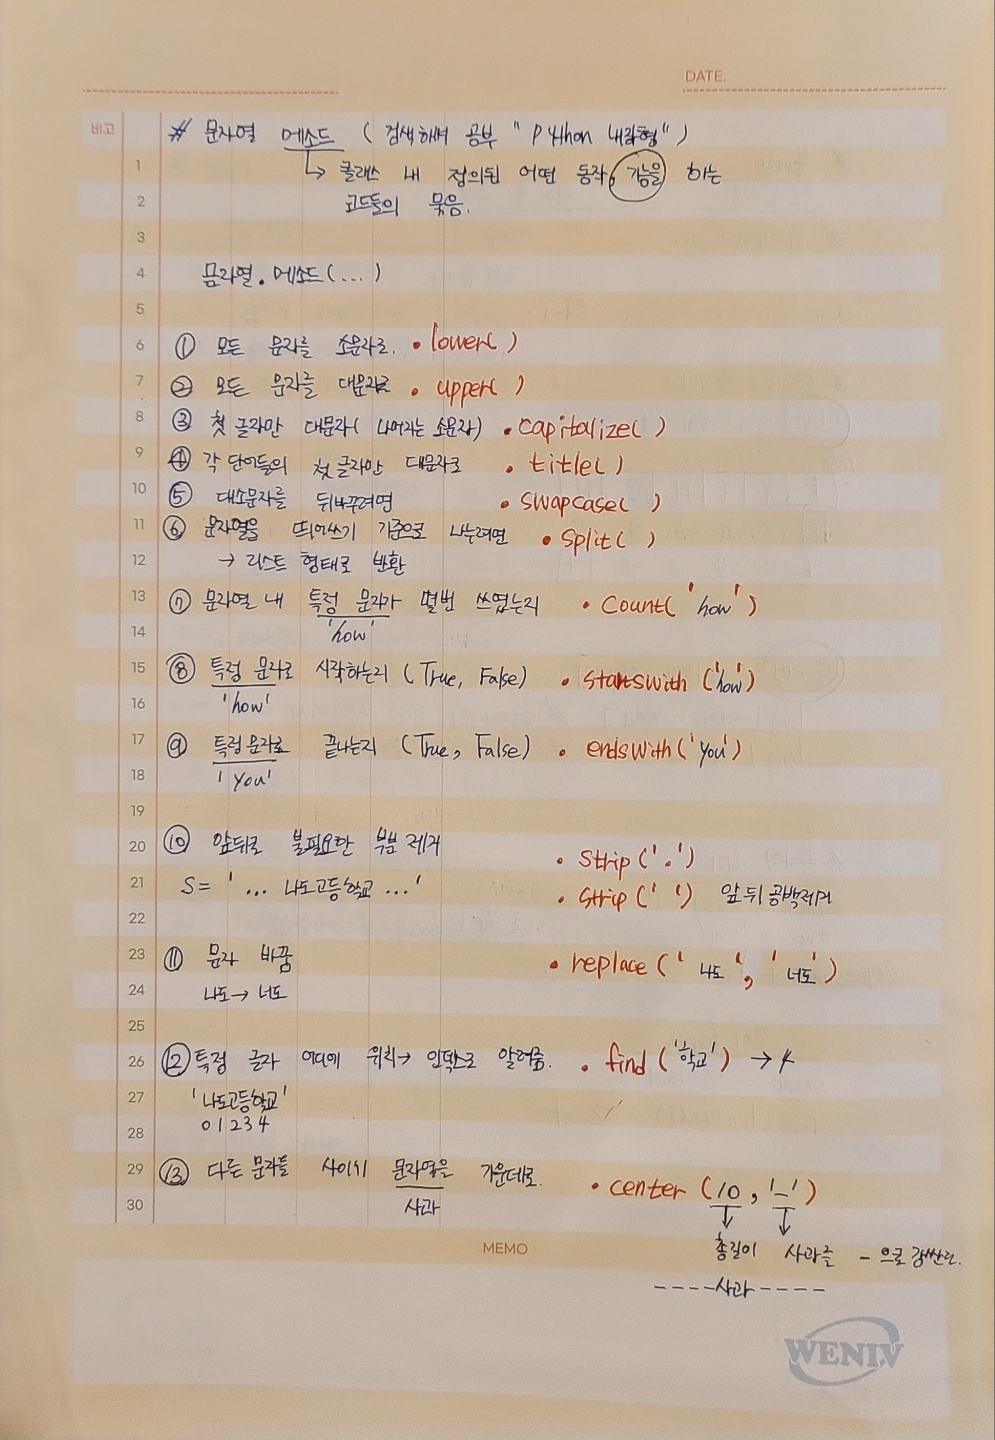 DATE.
비고
# 문자열 메소드 ( 검색해서 공부 " Python 내장형 " )
1 ↳ 클래스 내 정의된 어떤 동작, 기능을 하는
2 코드들의 묶음.
3
4 문자열 . 메소드 ( ... )
5
6 ① 모든 문자를 소문자로. • lower( )
7 ② 모든 문자를 대문자로 • upper( )
8 ③ 첫 글자만 대문자( 나머지는 소문자) • capitalize( )
9 ④ 각 단어들의 첫 글자만 대문자로 • title( )
10 ⑤ 대소문자를 뒤바꾸려면 • swapcase( )
11 ⑥ 문자열을 띄어쓰기 기준으로 나누려면 • split( )
12 → 리스트 형태로 반환
13 ⑦ 문자열 내 특정 문자가 몇번 쓰였는지 • Count( 'how' )
14 'how'
15 ⑧ 특정 문자로 시작하는지 ( True, False) • startswith ('how')
16 'how'
17 ⑨ 특정문자로 끝나는지 ( True, False) • endswith('you')
18 'you'
19
20 ⑩ 앞뒤로 불필요한 부분 제거 • strip ('.')
21 S= ' ... 나도고등학교 ... ' • strip (' ') 앞 뒤 공백제거
22
23 ⑪ 문자 바꿈 • replace ( '나도', '너도' )
24 나도 → 너도
25
26 ⑫ 특정 글자 어디에 위치→ 인덱스로 알려줌. • find ('학교') → 4
27 '나도고등학교'
28 0 1 2 3 4
29 ⑬ 다른 문자들 사이에 문자열을 가운데로. • center (10, '-')
30 사과
MEMO
↓ 총길이 ↓ 사과를 - 으로 감싼다.
----사과----
WENIV